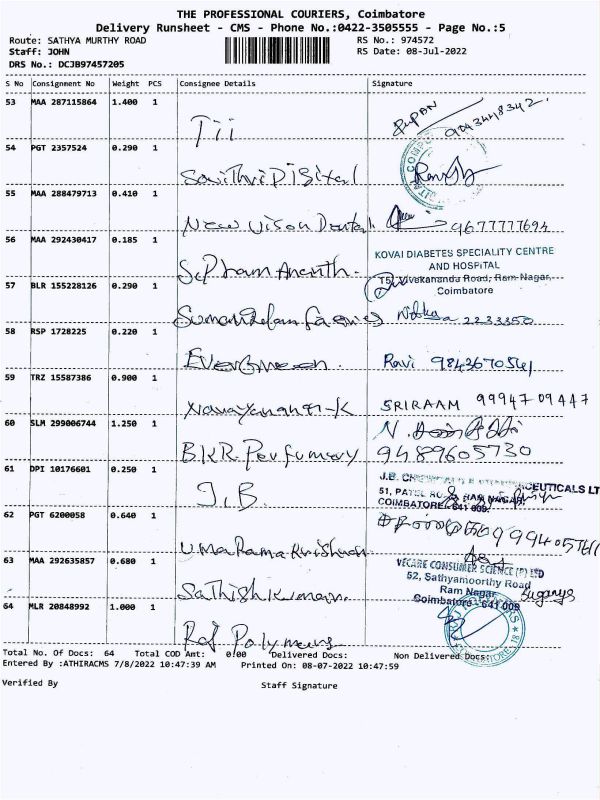 THE PROFESSIONAL COURIERS, Coimbatore
Delivery Runsheet - CMS - Phone No.:0422-3505555 - Page No.:5
Route: SATHYA MURTHY ROAD RS No.: 974572
Staff: JOHN RS Date: 08-Jul-2022
DRS No.: DCJB97457205
S No Consignment No Weight PCS Consignee Details Signature
53 MAA 287115864 1.400 1
Tii 9043448342.
54 PGT 2357524 0.290 1
Savithri Digital
55 MAA 288479713 0.410 1
New Vison Dental 9677777694
56 MAA 292430417 0.185 1 KOVAI DIABETES SPECIALITY CENTRE
AND HOSPITAL
Vivekananda Road, Ram Nagar,
Coimbatore
57 BLR 155228126 0.290 1
2233350
58 RSP 1728225 0.220 1
Evergreen. Ravi 9843670561
59 TRZ 15587386 0.900 1
SRIRAAM 99947 09447
60 SLM 299006744 1.250 1
BKR Perfumery 9489605730
61 DPI 10176601 0.250 1 J.B. CEUTICALS LT
J.B. COIMBATORE - 641 009.
62 PGT 6200058 0.640 1
Uma Rama Krishnan
63 MAA 292635857 0.680 1 VECARE CONSUMER SCIENCE (P) LTD
52, Sathyamoorthy Road
Sathish Kumar. Ram Nagar
Coimbatore - 641 009
Suganya
64 MLR 20848992 1.000 1
Raj Polymers
Total No. Of Docs: 64 Total COD Amt: 0.00 Delivered Docs: Non Delivered Docs:
Entered By :ATHIRACMS 7/8/2022 10:47:39 AM Printed On: 08-07-2022 10:47:59
Verified By Staff Signature